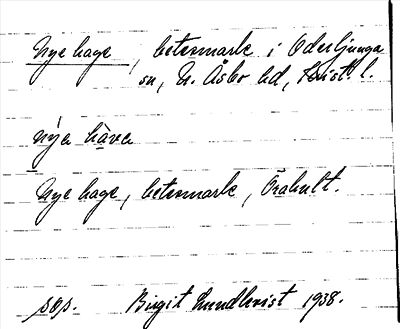 Nye hage, betesmark i Oderljunga
sn, N. Åsbo hd, Krist. l.
nýa hàva
Nye hage, betesmark, Örahult.
sep. Birgit Lundkvist 1938.